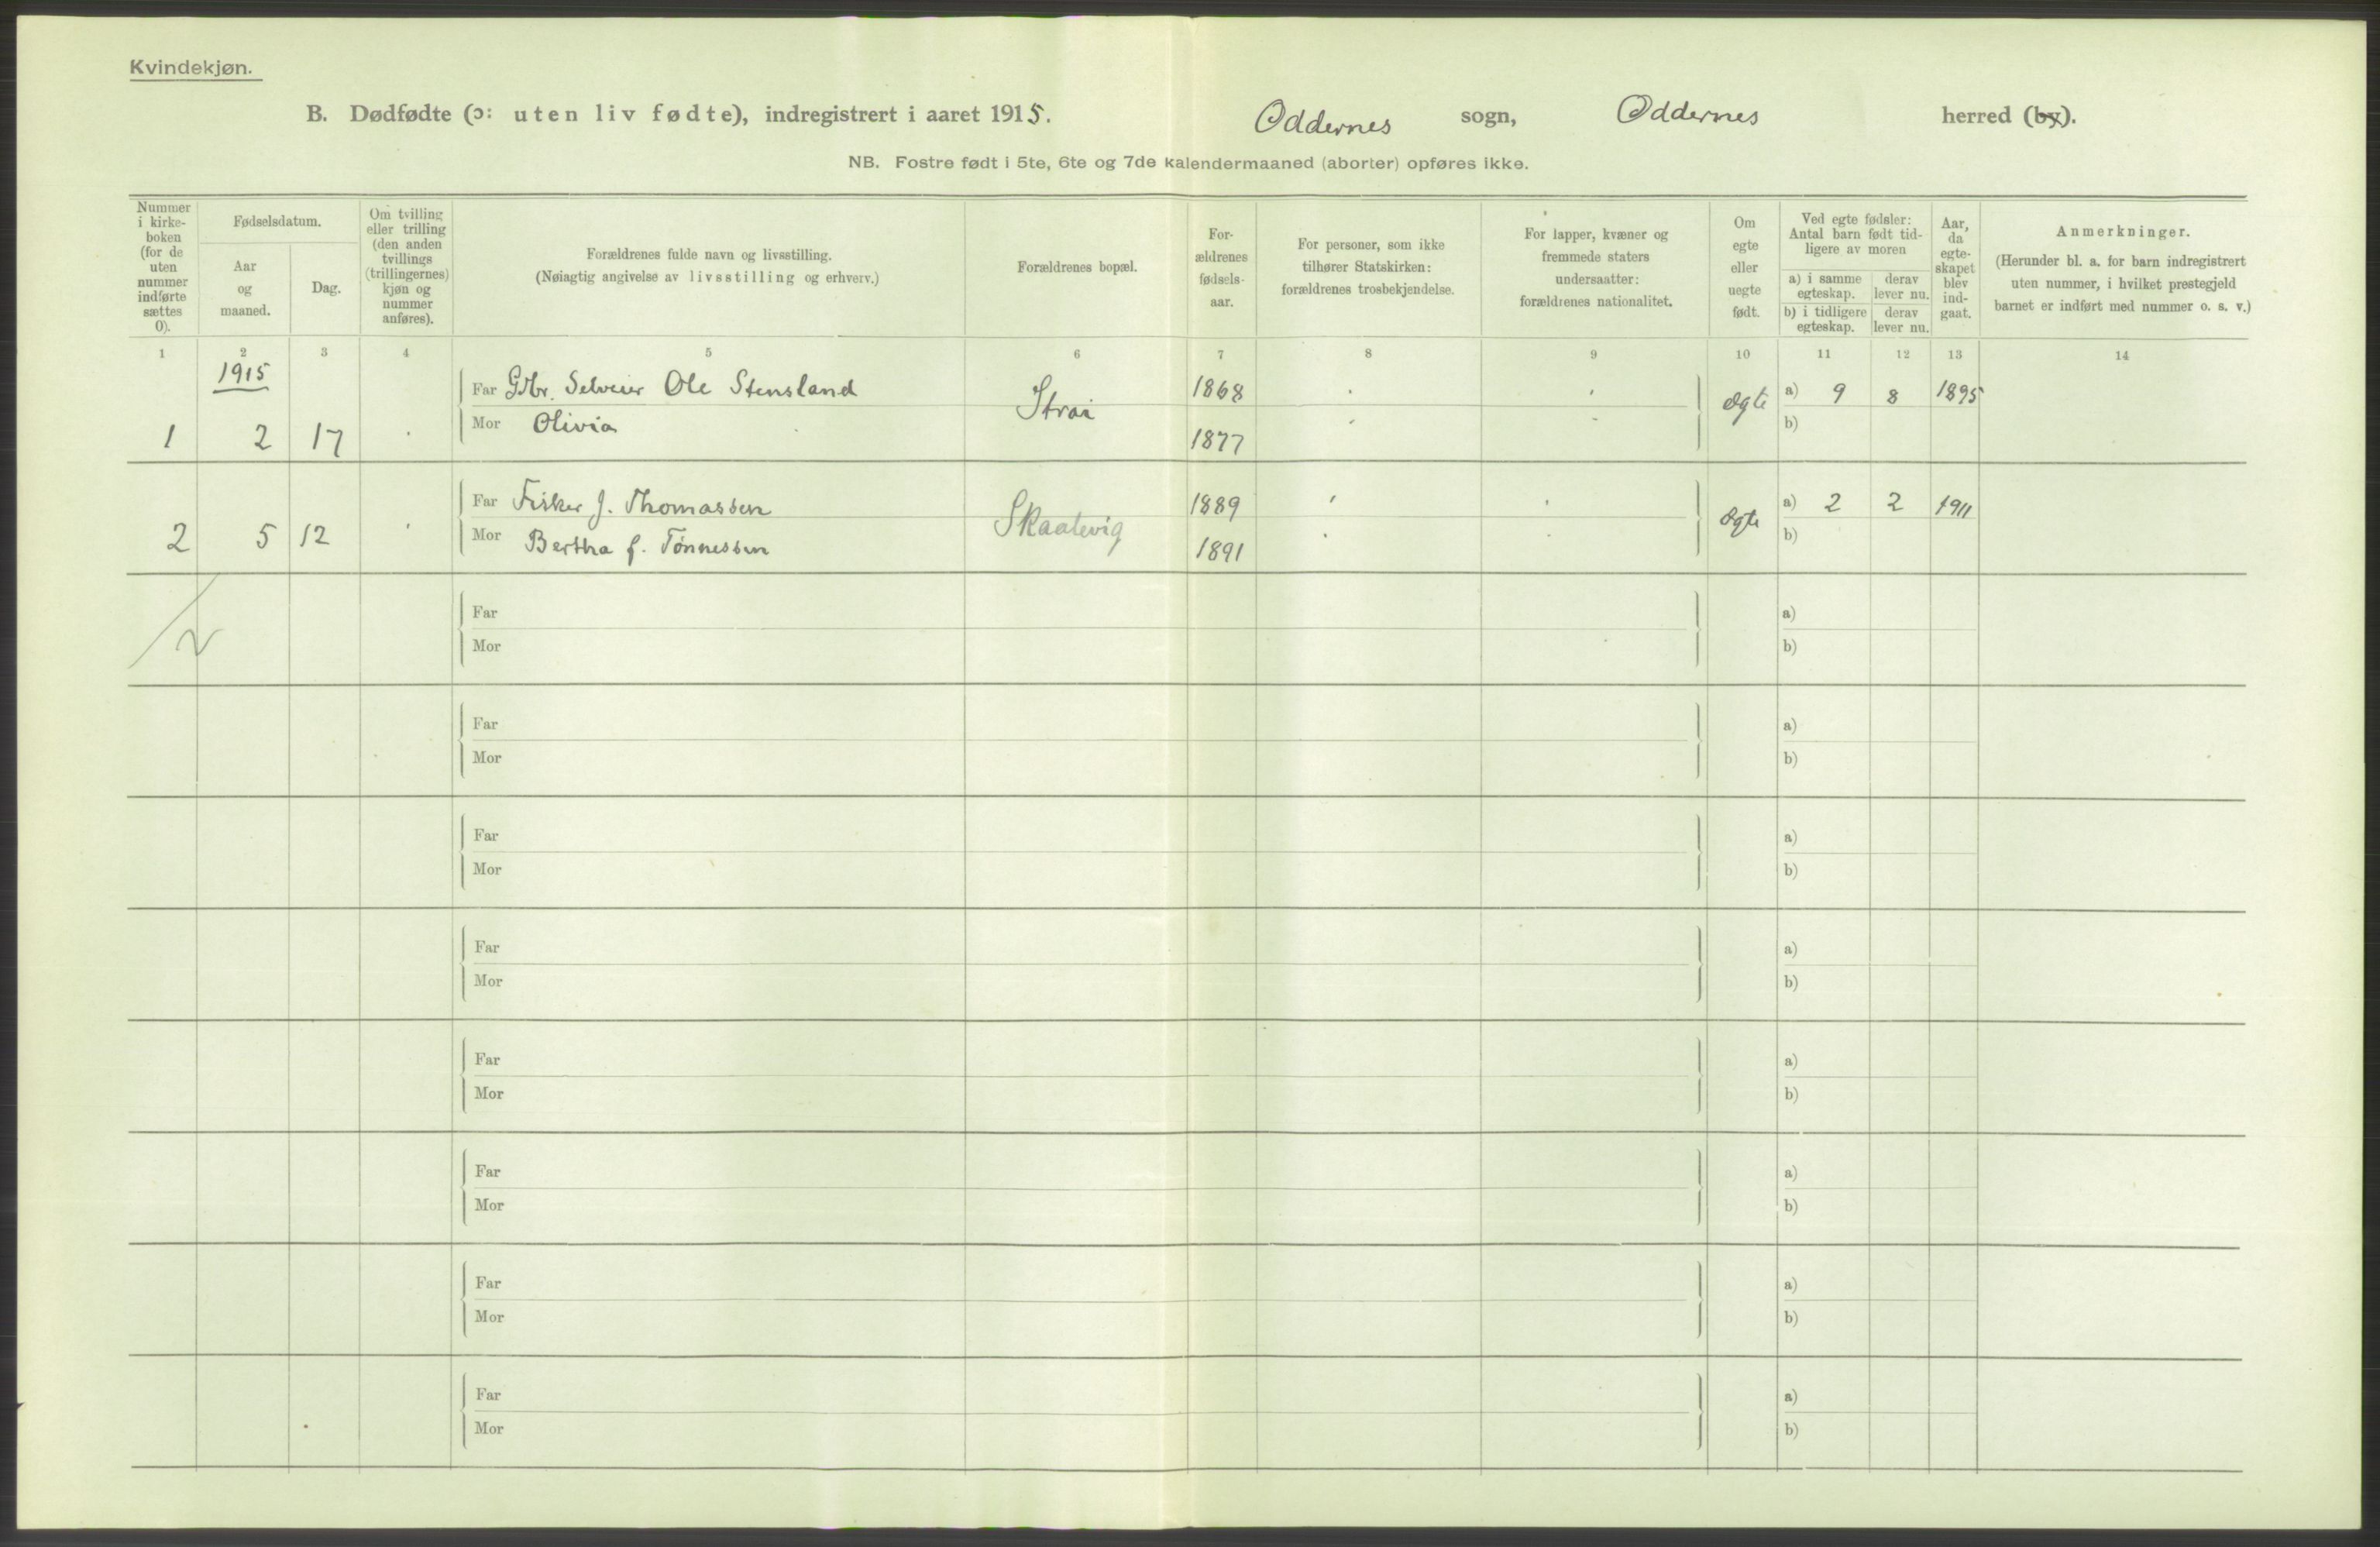 Kvindekjøn.
B. Dødfødte (ɔ: uten liv fødte), indregistrert i aaret 1915. Oddernes sogn, Oddernes herred (by).
NB. Fostre født i 5te, 6te og 7de kalendermaaned (aborter) opføres ikke.
Nummer i kirke-boken (for de uten nummer indførte sættes 0).
Fødselsdatum.
Aar og maaned.
Dag.
Om tvilling eller trilling (den anden tvillings (trillingernes) kjøn og nummer anføres).
Forældrenes fulde navn og livsstilling.
(Nøiagtig angivelse av livsstilling og erhverv.)
Forældrenes bopæl.
For-ældrenes fødsels-aar.
For personer, som ikke tilhører Statskirken: forældrenes trosbekjendelse.
For lapper, kvæner og fremmede staters undersaatter: forældrenes nationalitet.
Om egte eller uegte født.
Ved egte fødsler: Antal barn født tid-ligere av moren
a) i samme egteskap.
derav lever nu.
b) i tidligere egteskap.
derav lever nu.
Aar, da egte-skapet blev ind-gaat.
Anmerkninger.
(Herunder bl. a. for barn indregistrert uten nummer, i hvilket prestegjeld barnet er indført med nummer o. s. v.)
1 2 3 4 5 6 7 8 9 10 11 12 13 14
1915
Far Gdbr. Selveier Ole Stensland Strai 1868 ægte a) 9 8 1895
1 2 17 Mor Olivia 1877 b)
Far Fisker J. Thomassen Skaalevig 1889 ægte a) 2 2 1911
2 5 12 Mor Bertha f. Tønnessen 1891 b)
Far a)
2 Mor b)
Far a)
Mor b)
Far a)
Mor b)
Far a)
Mor b)
Far a)
Mor b)
Far a)
Mor b)
Far a)
Mor b)
Far a)
Mor b)